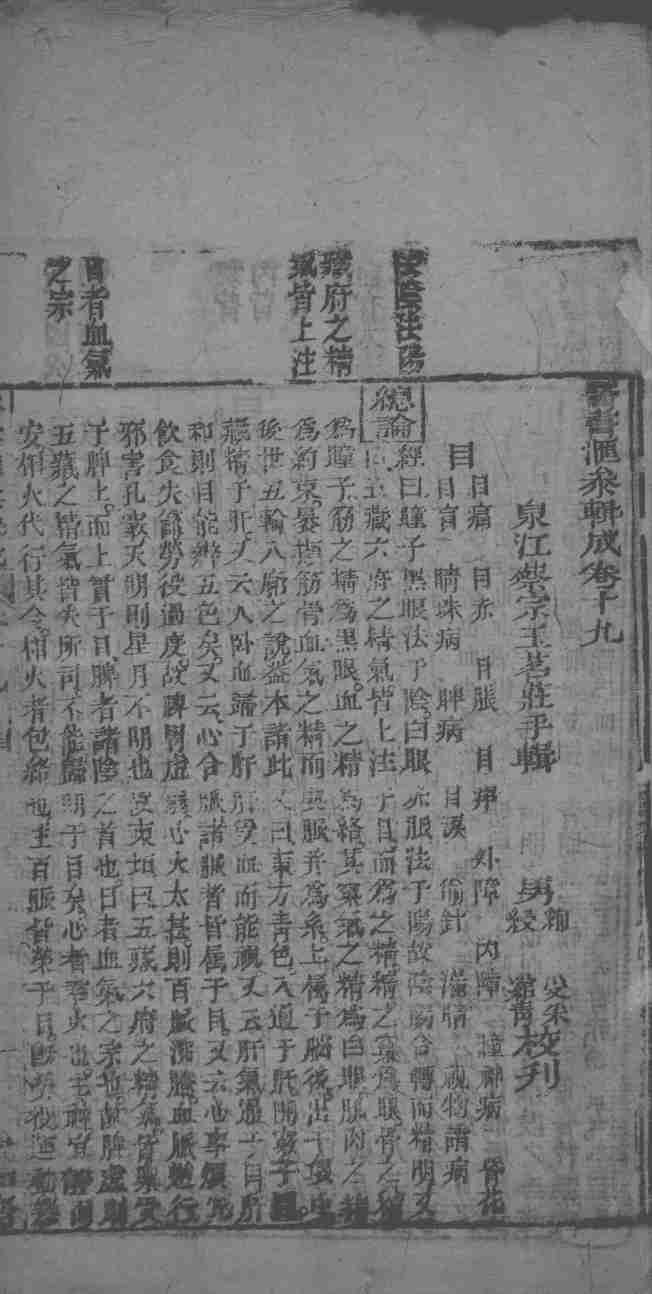 法陰法陽
臟府之精
氣皆上注
目者血氣
之宗
醫書滙參輯成卷十九
泉江蔡宗玉茗莊手輯 男 校刊
目
目痛 目赤 目脹 目痒 外障 內障 瞳神病 昏花
目盲 睛珠病 睥病 目淚 偷針 視物諸病
總論 經曰瞳子黑眼法于陰白眼赤脈法于陽故陰陽合轉而精明又
曰五臟六府之精氣皆上注于目而為之精精之窠為眼骨之精
為瞳子筋之精為黑眼血之精為絡其窠氣之精為白眼肌肉之精
為約束裹擷筋骨血氣之精而與脈并為系上屬于腦後出于項中
後世五輪八廓之說蓋本諸此又曰東方青色入通于肝開竅于目
藏精于肝又云人臥血歸于肝肝受血而能視又云肝氣通于目肝
和則目能辨五色矣又云心合脈諸脈者皆屬于目又云心事煩冗
飲食失節勞役過度故脾胃虛弱心火太甚則百脈沸騰血脈逆行
邪害孔竅天明則星月不明也夫五臟六府之精氣皆稟受
于脾土而上貫于目脾者諸陰之首也目者血氣之宗也故脾虛則
五臟之精氣皆失所司不能歸明于目矣心者君火也主
安相火代行其令相火者包絡也主百脈皆榮于目既勞役運動